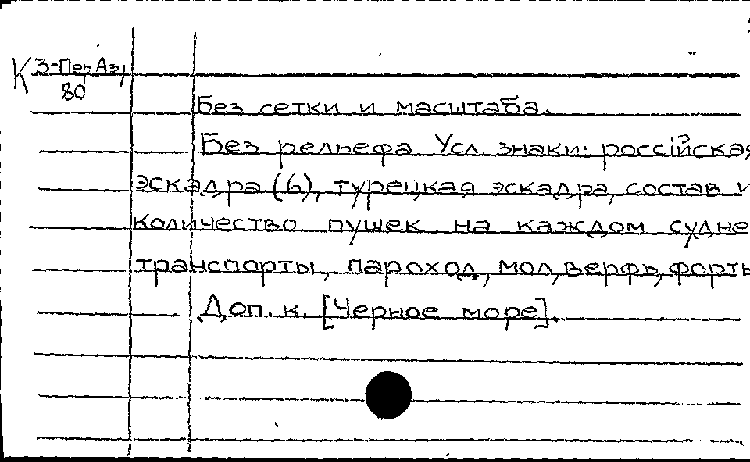 К З-Пер.Аз.
80
Без сетки и масштаба.
Без рельефа Усл. знаки: россійская
эскадра (6), турецкая эскадра, состав и
количество пушек на каждом судне
транспорты, пароход, мол, верфь, форты
Доп. к. [Черное море].